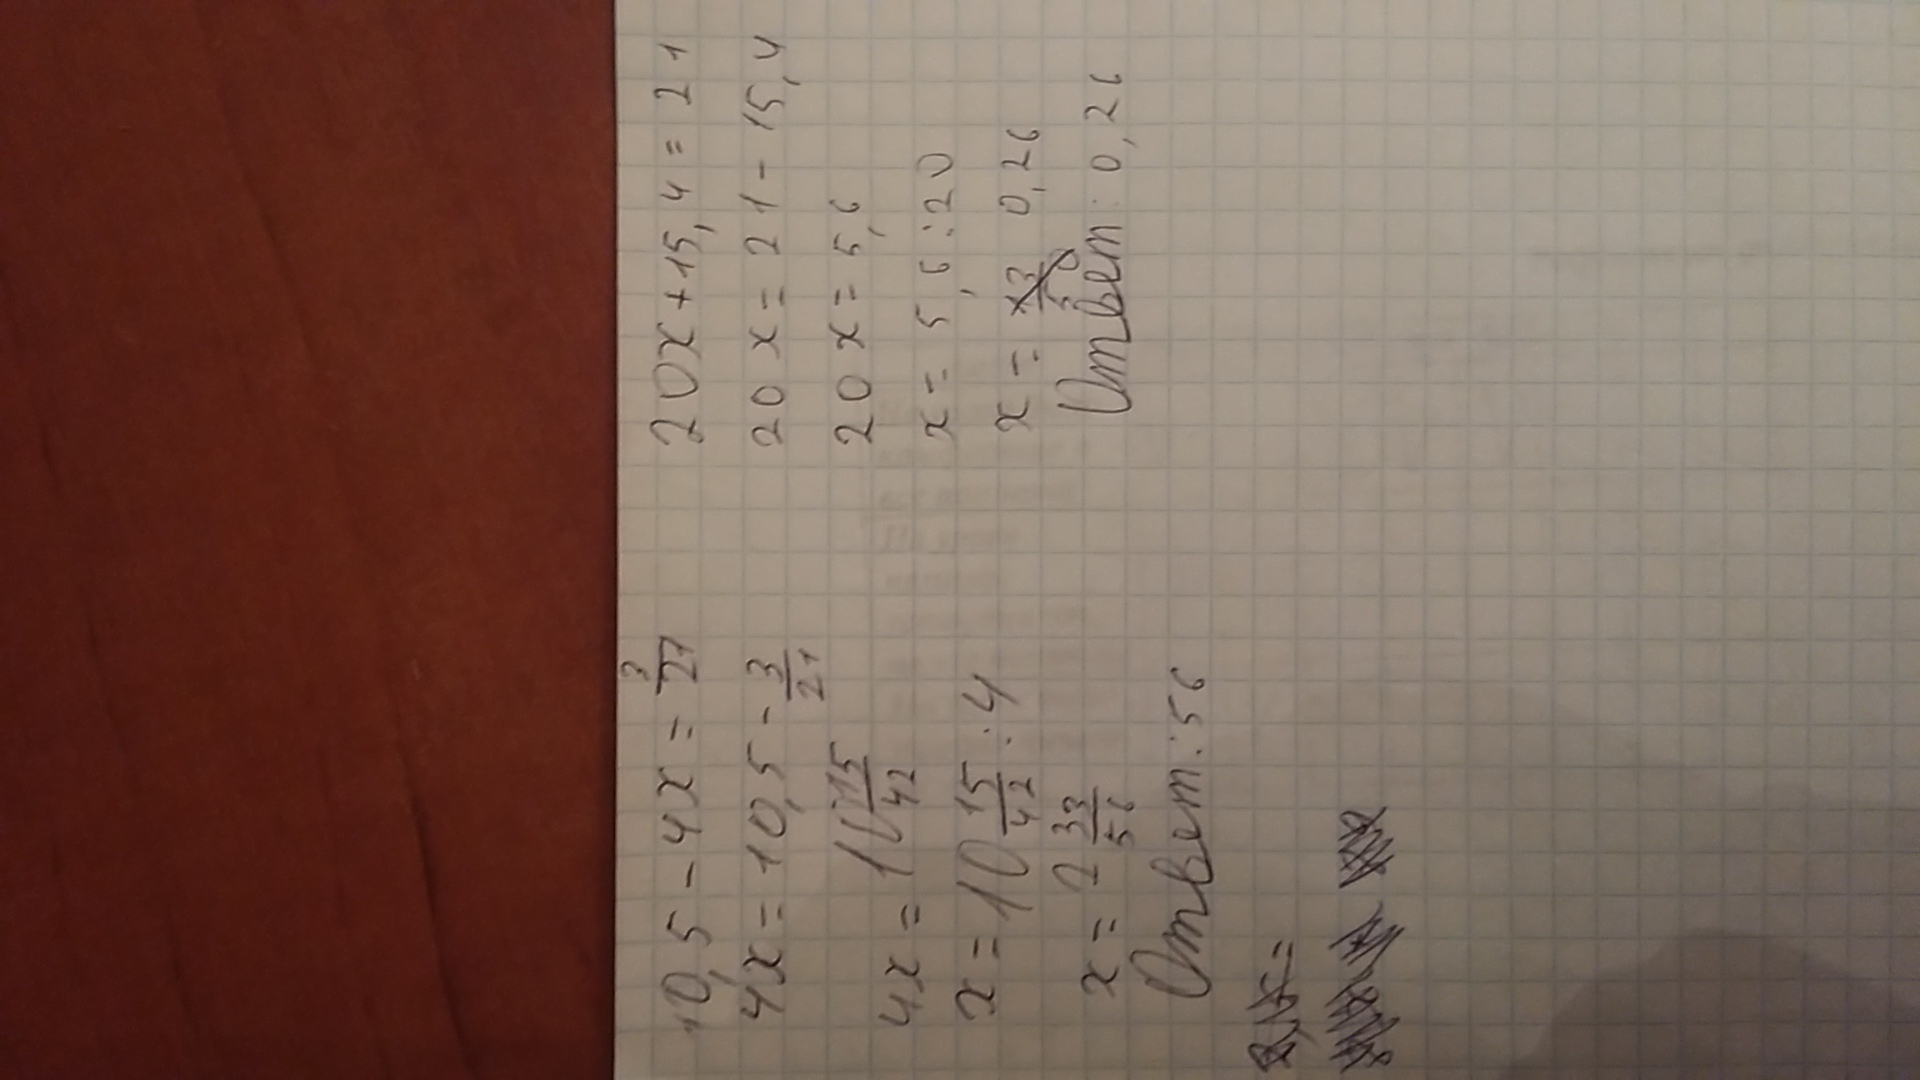 10,5 - 4x = 3/21
4x = 10,5 - 3/21
4x = 10 15/42
x = 10 15/42 : 4
x = 2 33/56
Ответ: 56
20x + 15,4 = 21
20x = 21 - 15,4
20x = 5,6
x = 5,6 : 20
x = 0,26
Ответ: 0,26